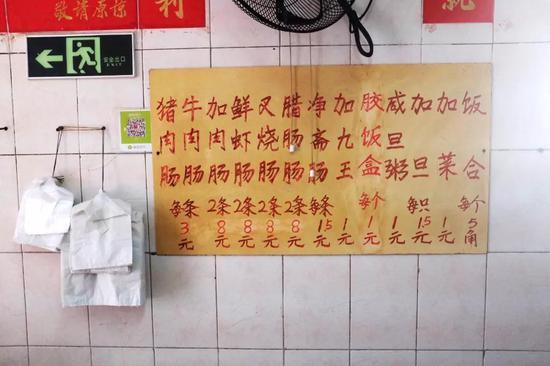 敬请原谅
利
安全出口
EXIT
猪肉肠
牛肉肠
加肉肠
鲜虾肠
叉烧肠
腊肠肠
净斋肠
加九王
胶饭盒
咸旦粥
加旦
加菜
饭合
每条 2条 2条 2条 2条 每条 每个 每只 每个
3 8 8 8 8 1.5 1 1 1 1.5 1 5
元 元 元 元 元 元 元 元 元 元 元 角